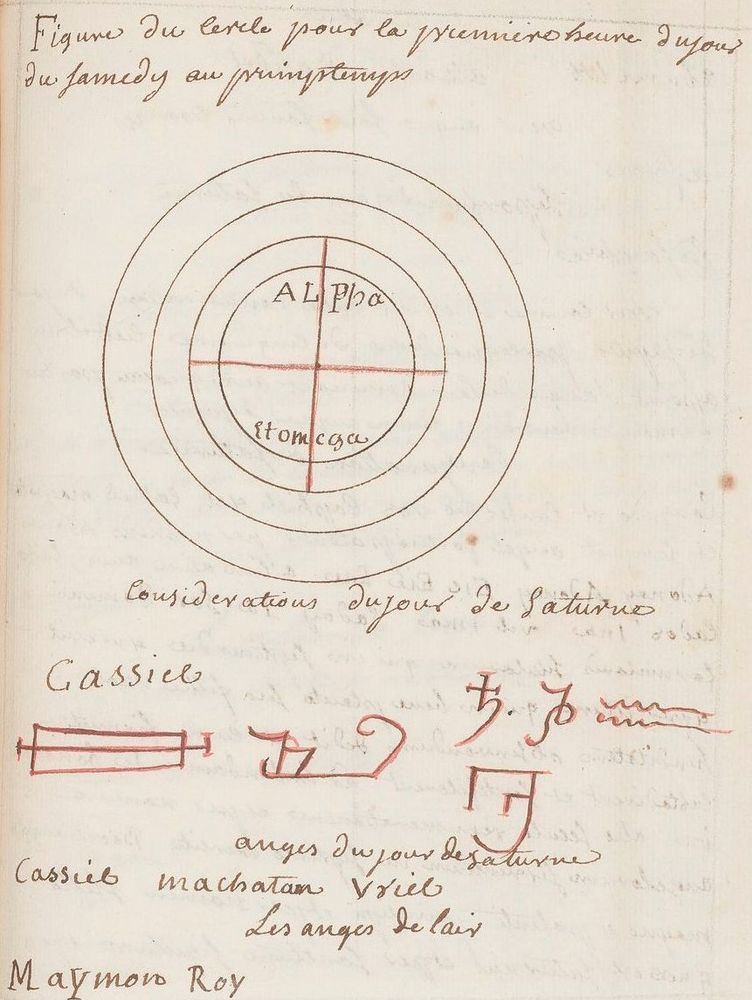 Figure du cercle pour la premiere heure du jour
du samedy au primptemps
ALPha
Et omega
Considerations du jour de Saturne
Cassiel
♄. ♑ ♒
anges du jour de Saturne
Cassiel machatan Vriel
Les anges de lair
Maymon Roy